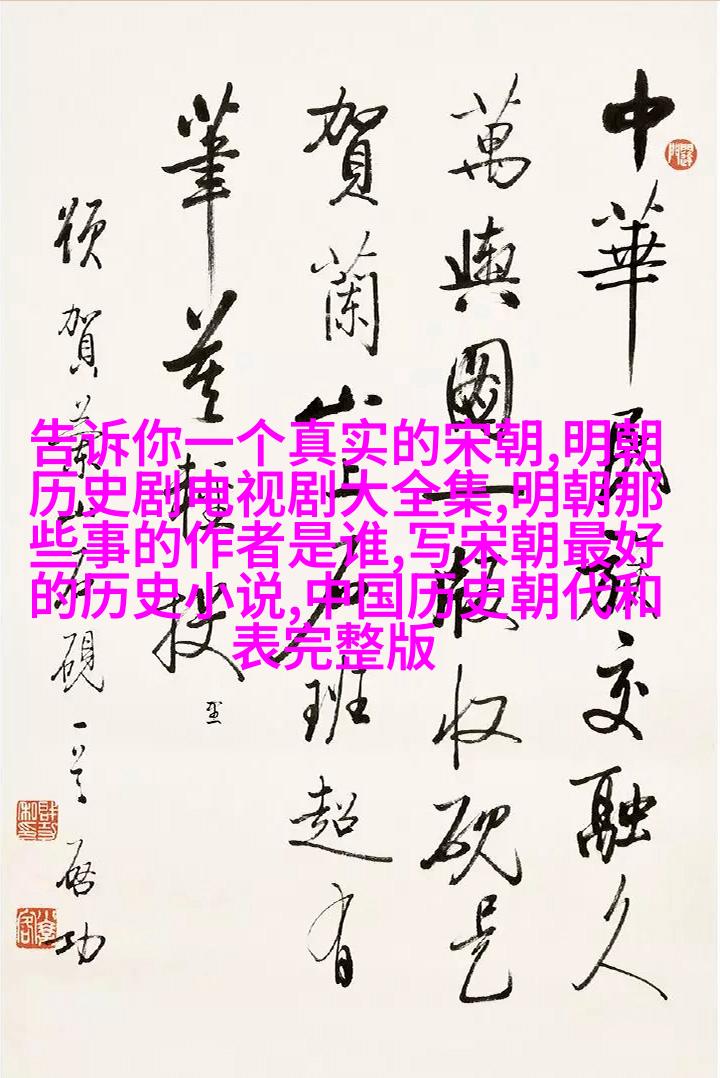 告诉你一个真实的宋朝,明朝
历史剧电视剧大全集,明朝那
些事的作者是谁,写宋朝最好
的历史小说,中国历史朝代和
表完整版
中華民族交融久
萬輿圖一版收硯是
賀蘭山上石班超有
筆莫輕投 里
賀蘭山石硯一首 启功